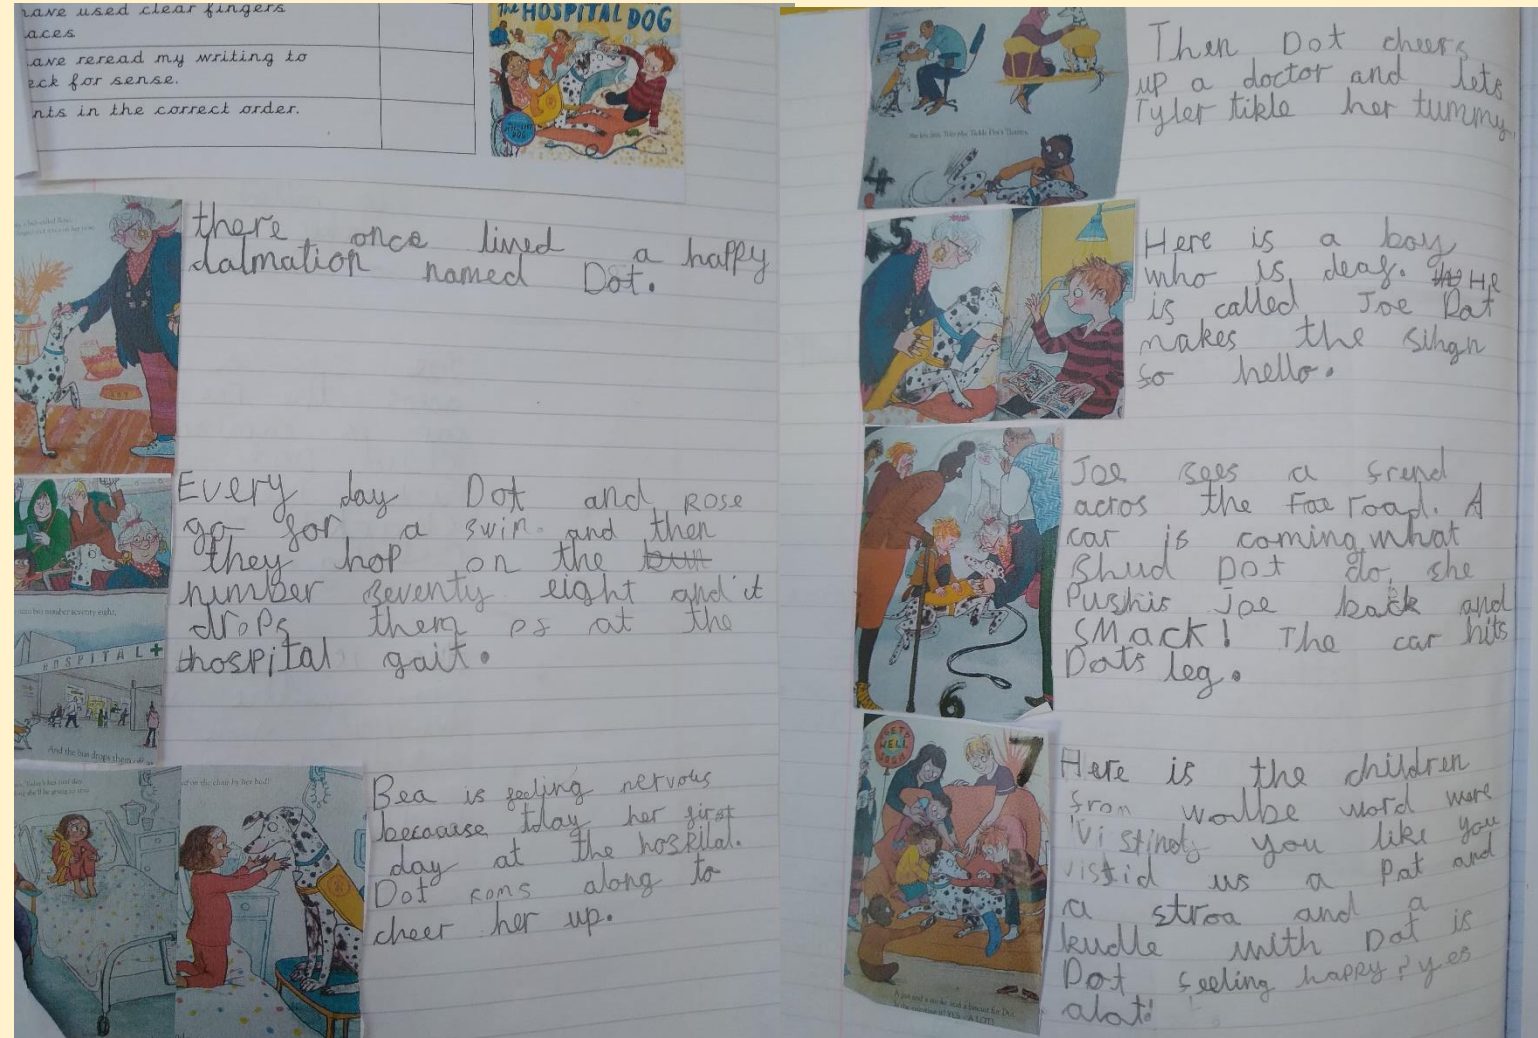 have used clear fingers
aces
have reread my writing to
eck for sense.
nts in the correct order.
The HOSPITAL DOG
there once lived a happy
dalmation named Dot.
Every day Dot and Rose
go for a swim and then
they hop on the
number seventy eight and it
drops them os at the
hospital gait.
HOSPITAL
And the bus drops them
Bea is feeling nervous
becaause today her first
day at the hospital.
Dot coms along to
cheer her up.
Then Dot cheers
up a doctor and lets
Tyler tikle her tummy.
4
Here is a boy
who is deaf. He
is called Joe Dot
makes the sihgn
so hello.
Joe sees a frend
acros the road. A
car is coming what
shud Dot do, she
Pushis Joe back and
SMACK! The car hits
Dots leg.
6
GET WELL SOON
7
Here is the children
from wolbe word were
Vistind you like you
vistid us a Pat and
a stroa and a
kudle with Dot is
Dot feeling happy? yes
alot!